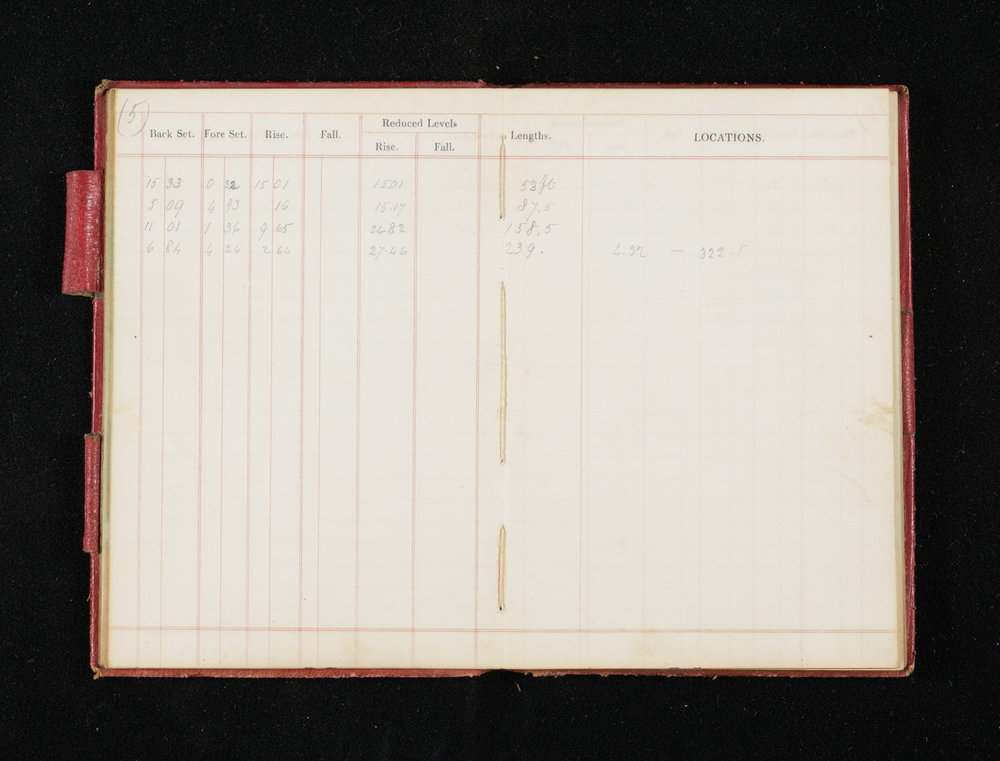 (5)
Reduced Levels
Back Set. Fore Set. Rise. Fall. Rise. Fall. Lengths. LOCATIONS.
15 33 0 32 15 01 15.01 53 ft
5 09 4 93 16 15.17 87.5
11 01 1 36 9 65 24.82 158.5
6 84 4 24 2 64 27.46 239. 4.32 — 322.5